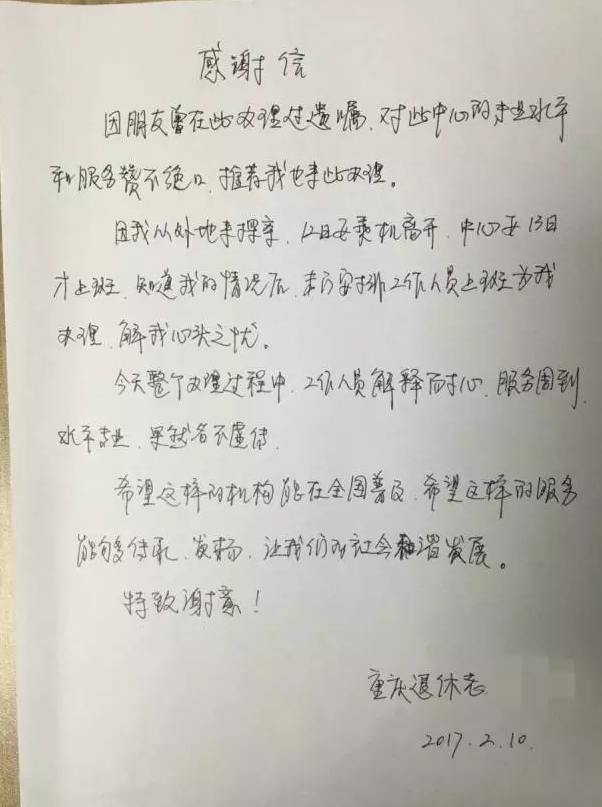 感谢信
因朋友曾在此办理过遗嘱、对此中心的专业水平
和服务赞不绝口、推荐我也来此办理。
因我从外地来探亲，12日要乘机离开，中心要13日
才上班，知道我的情况后，安排工作人员上班为我
办理，解我心头之忧。
今天整个办理过程中，工作人员解释耐心，服务周到，
水平专业，果然名不虚传
希望这样的机构能在全国普及，希望这样的服务
能够传承、发扬，让我们的社会和谐发展。
特致谢意！
重庆退休老
2017.2.10.